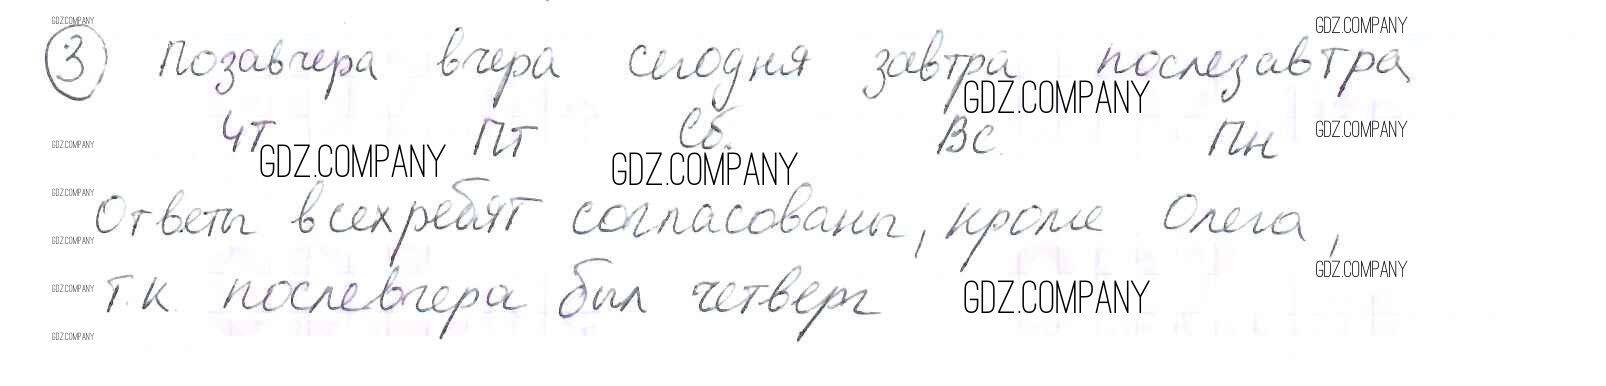 GDZ.COMPANY GDZ.COMPANY
3 Позавчера вчера сегодня завтра послезавтра
GDZ.COMPANY
чт Пт Сб. Вс Пн GDZ.COMPANY
GDZ.COMPANY GDZ.COMPANY GDZ.COMPANY
GDZ.COMPANY
Ответы всех ребят согласованы, кроме Олега,
GDZ.COMPANY
GDZ.COMPANY
т.к. послевчера был четверг GDZ.COMPANY
GDZ.COMPANY
GDZ.COMPANY